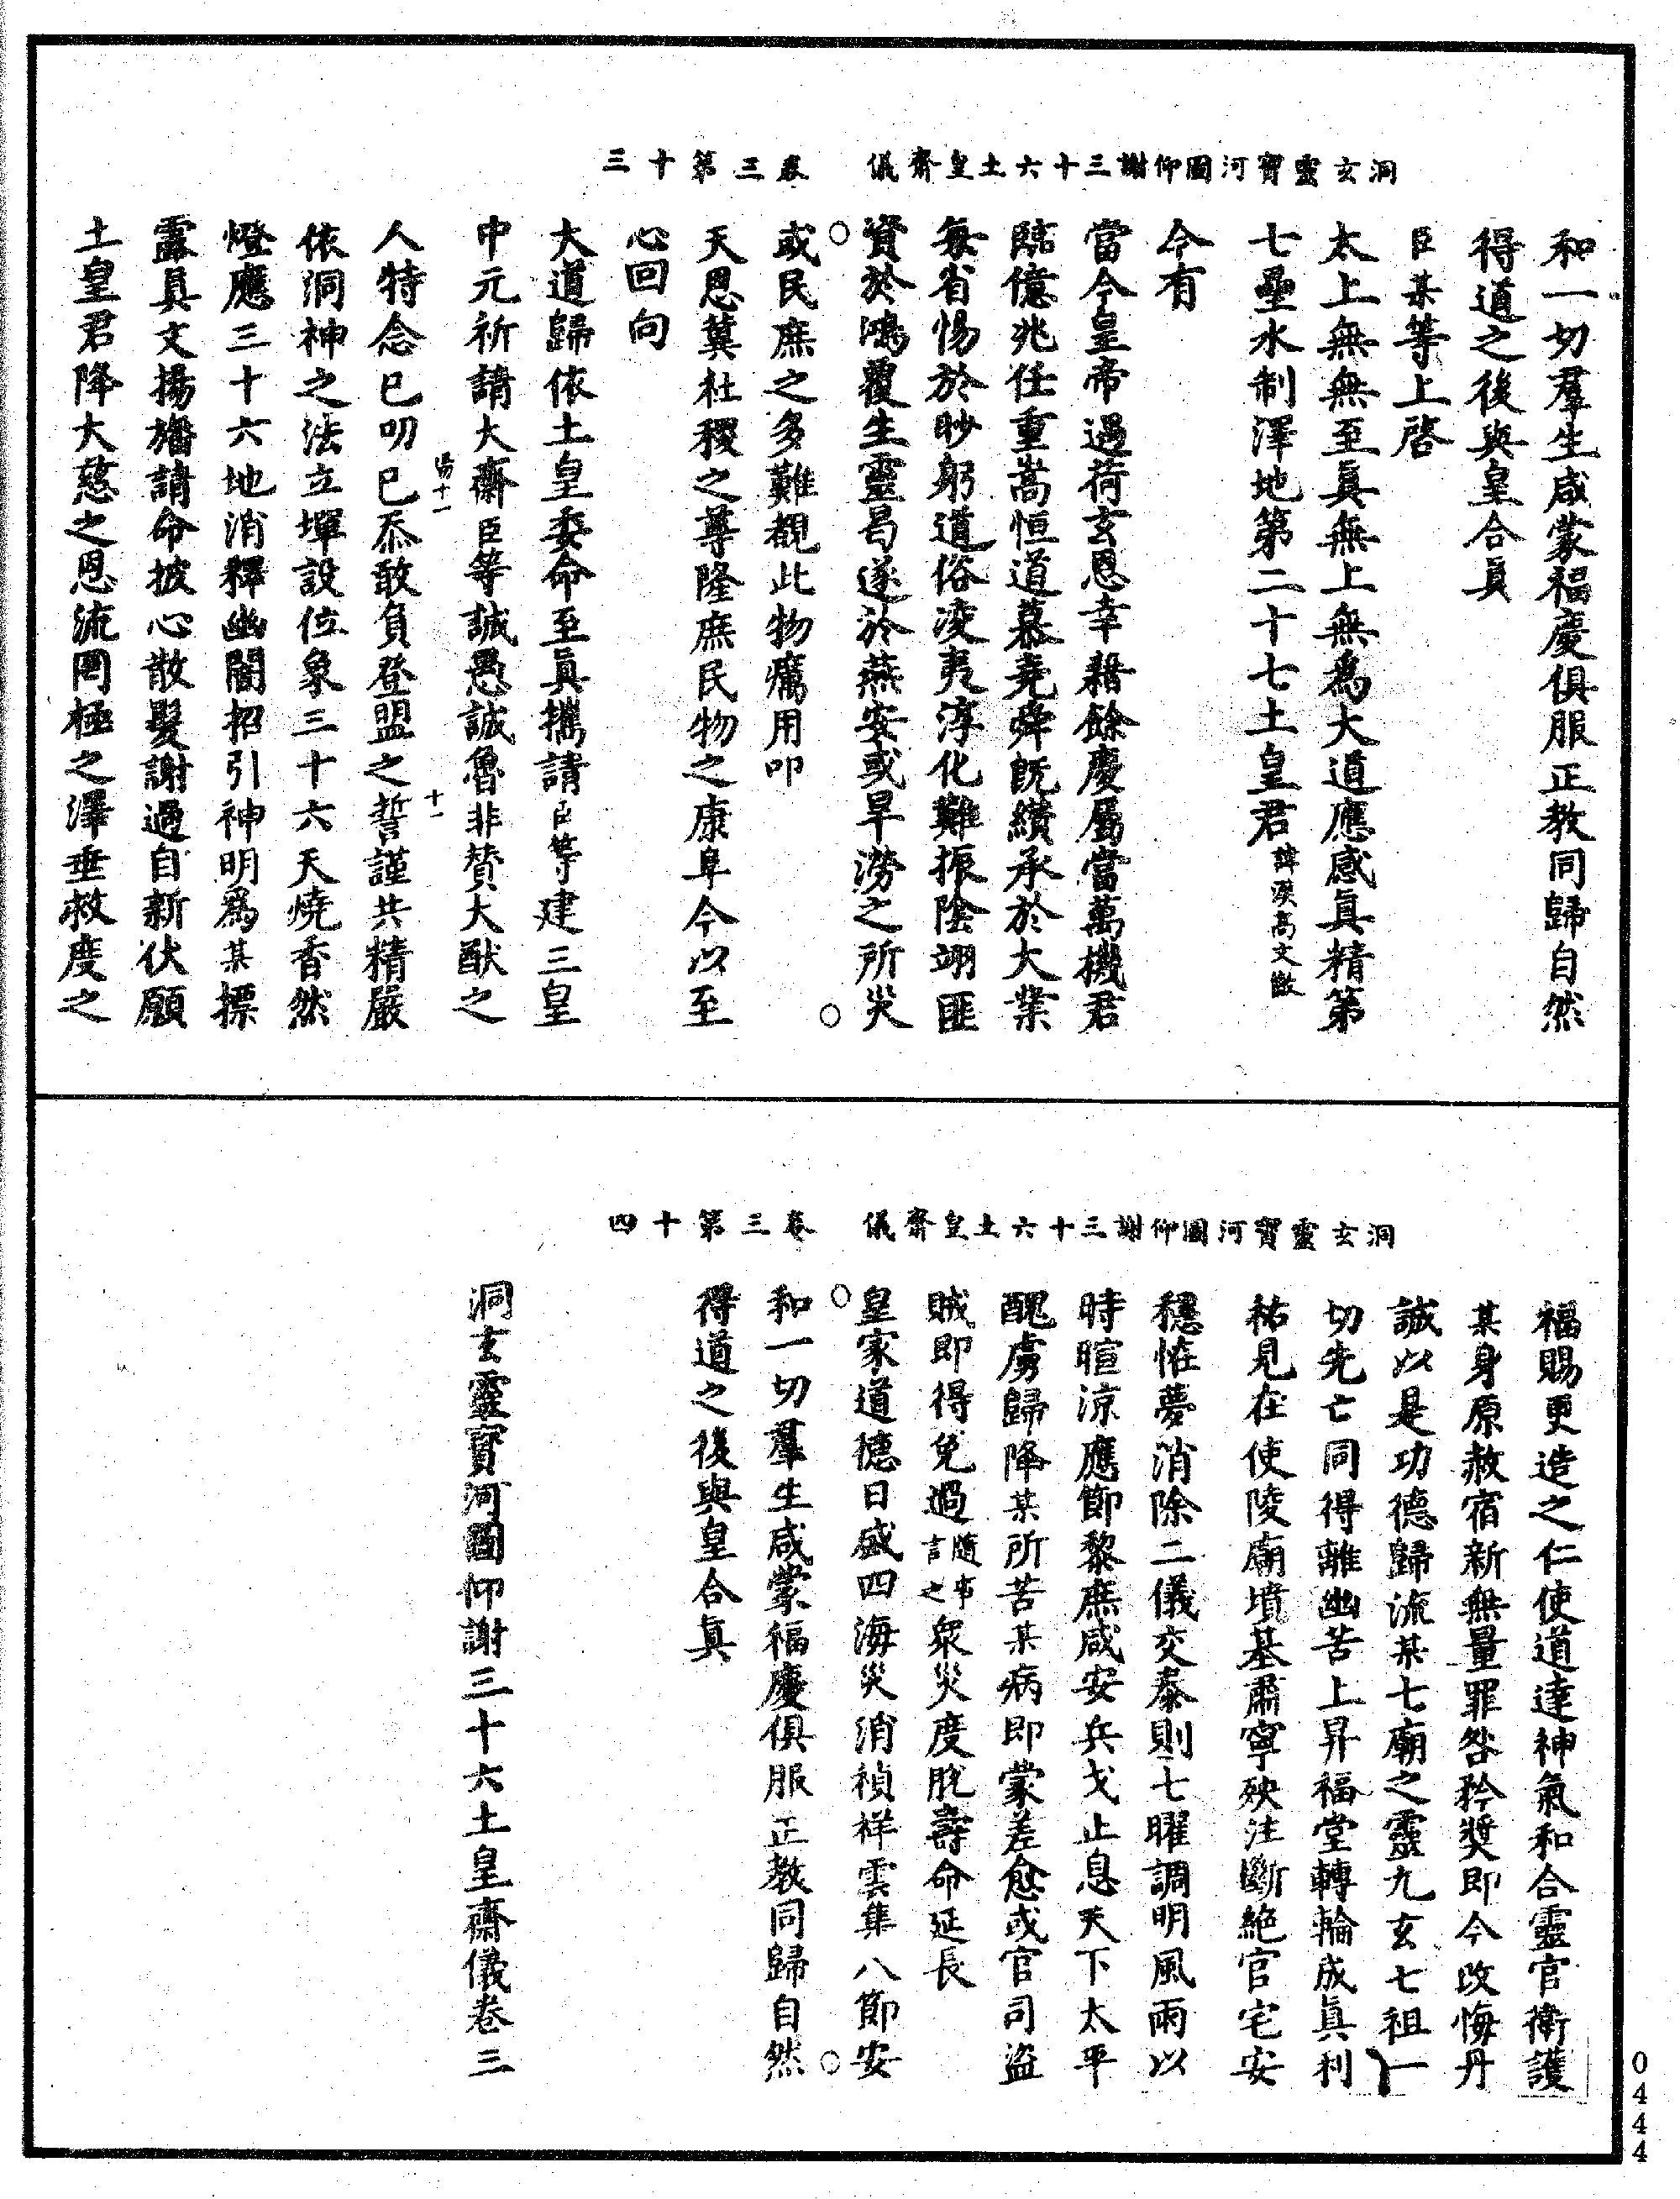 洞玄靈寶河圖仰謝三十六土皇齋儀　卷三第十三
和一切羣生咸蒙福慶俱服正教同歸自然
得道之後與皇合眞
臣某等上啓
太上無無至眞無上無為大道應感眞精第
七壘水制澤地第二十七土皇君諱漢高文徹
今有
當今皇帝過荷玄恩幸藉餘慶屬當萬機君
臨億兆任重嵩恒道慕堯舜旣纘承於大業
每省惕於眇躬道俗淩夷淳化難振陰翊匪
資於鴻覆生靈曷遂於燕安或旱澇之所災
或民庶之多難覩此物癘用叩
天恩冀社稷之尊隆庶民物之康阜今以至
心回向
大道歸依土皇委命至眞攜請臣等建三皇
中元祈請大齋臣等誠愚誠魯非賛大猷之
人特念已叨已忝敢負登盟之誓謹共精嚴
傷十一
十一
依洞神之法立墠設位象三十六天燒香然
燈應三十六地消釋幽闇招引神明為某摽
露眞文揚旛請命披心散髮謝過自新伏願
土皇君降大慈之恩流罔極之澤垂救度之
洞玄靈寶河圖仰謝三十六土皇齋儀　卷三第十四
福賜更造之仁使道達神氣和合靈官衛護
某身原赦宿新無量罪咎矜奬即今改悔丹
誠以是功德歸流某七廟之靈九玄七祖一
切先亡同得離幽苦上昇福堂轉輪成眞利
祐見在使陵廟墳基肅寧殃注斷絶官宅安
穩恠夢消除二儀交泰則七曜調明風雨以
時暄涼應節黎庶咸安兵戈止息天下太平
醜虜歸降某所苦某病即蒙差愈或官司盜
賊即得免過隨事言之衆災度脫壽命延長
皇家道德日盛四海災消禎祥雲集八節安
和一切羣生咸蒙福慶俱服正教同歸自然
得道之後與皇合眞
洞玄靈寶河圖仰謝三十六土皇齋儀卷三
0444